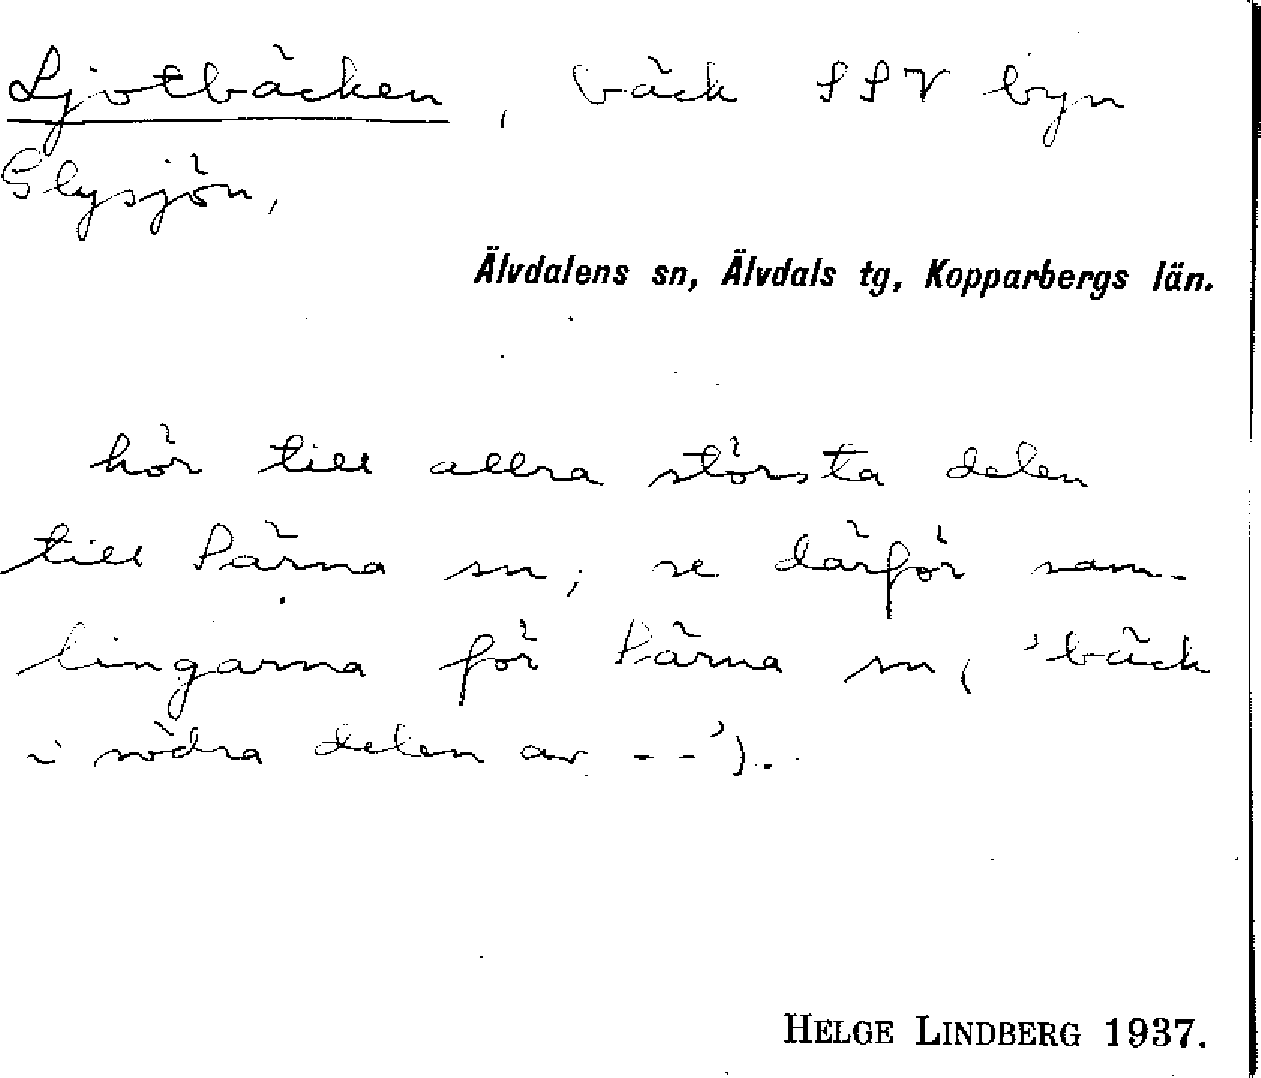 Ljotbäcken, bäck SSV byn
Glysjön,
Älvdalens sn, Älvdals tg, Kopparbergs län.
hör till allra största delen
till Särna sn; se därför sam-
lingarna för Särna sn ('bäck
i södra delen av - -').
HELGE LINDBERG 1937.